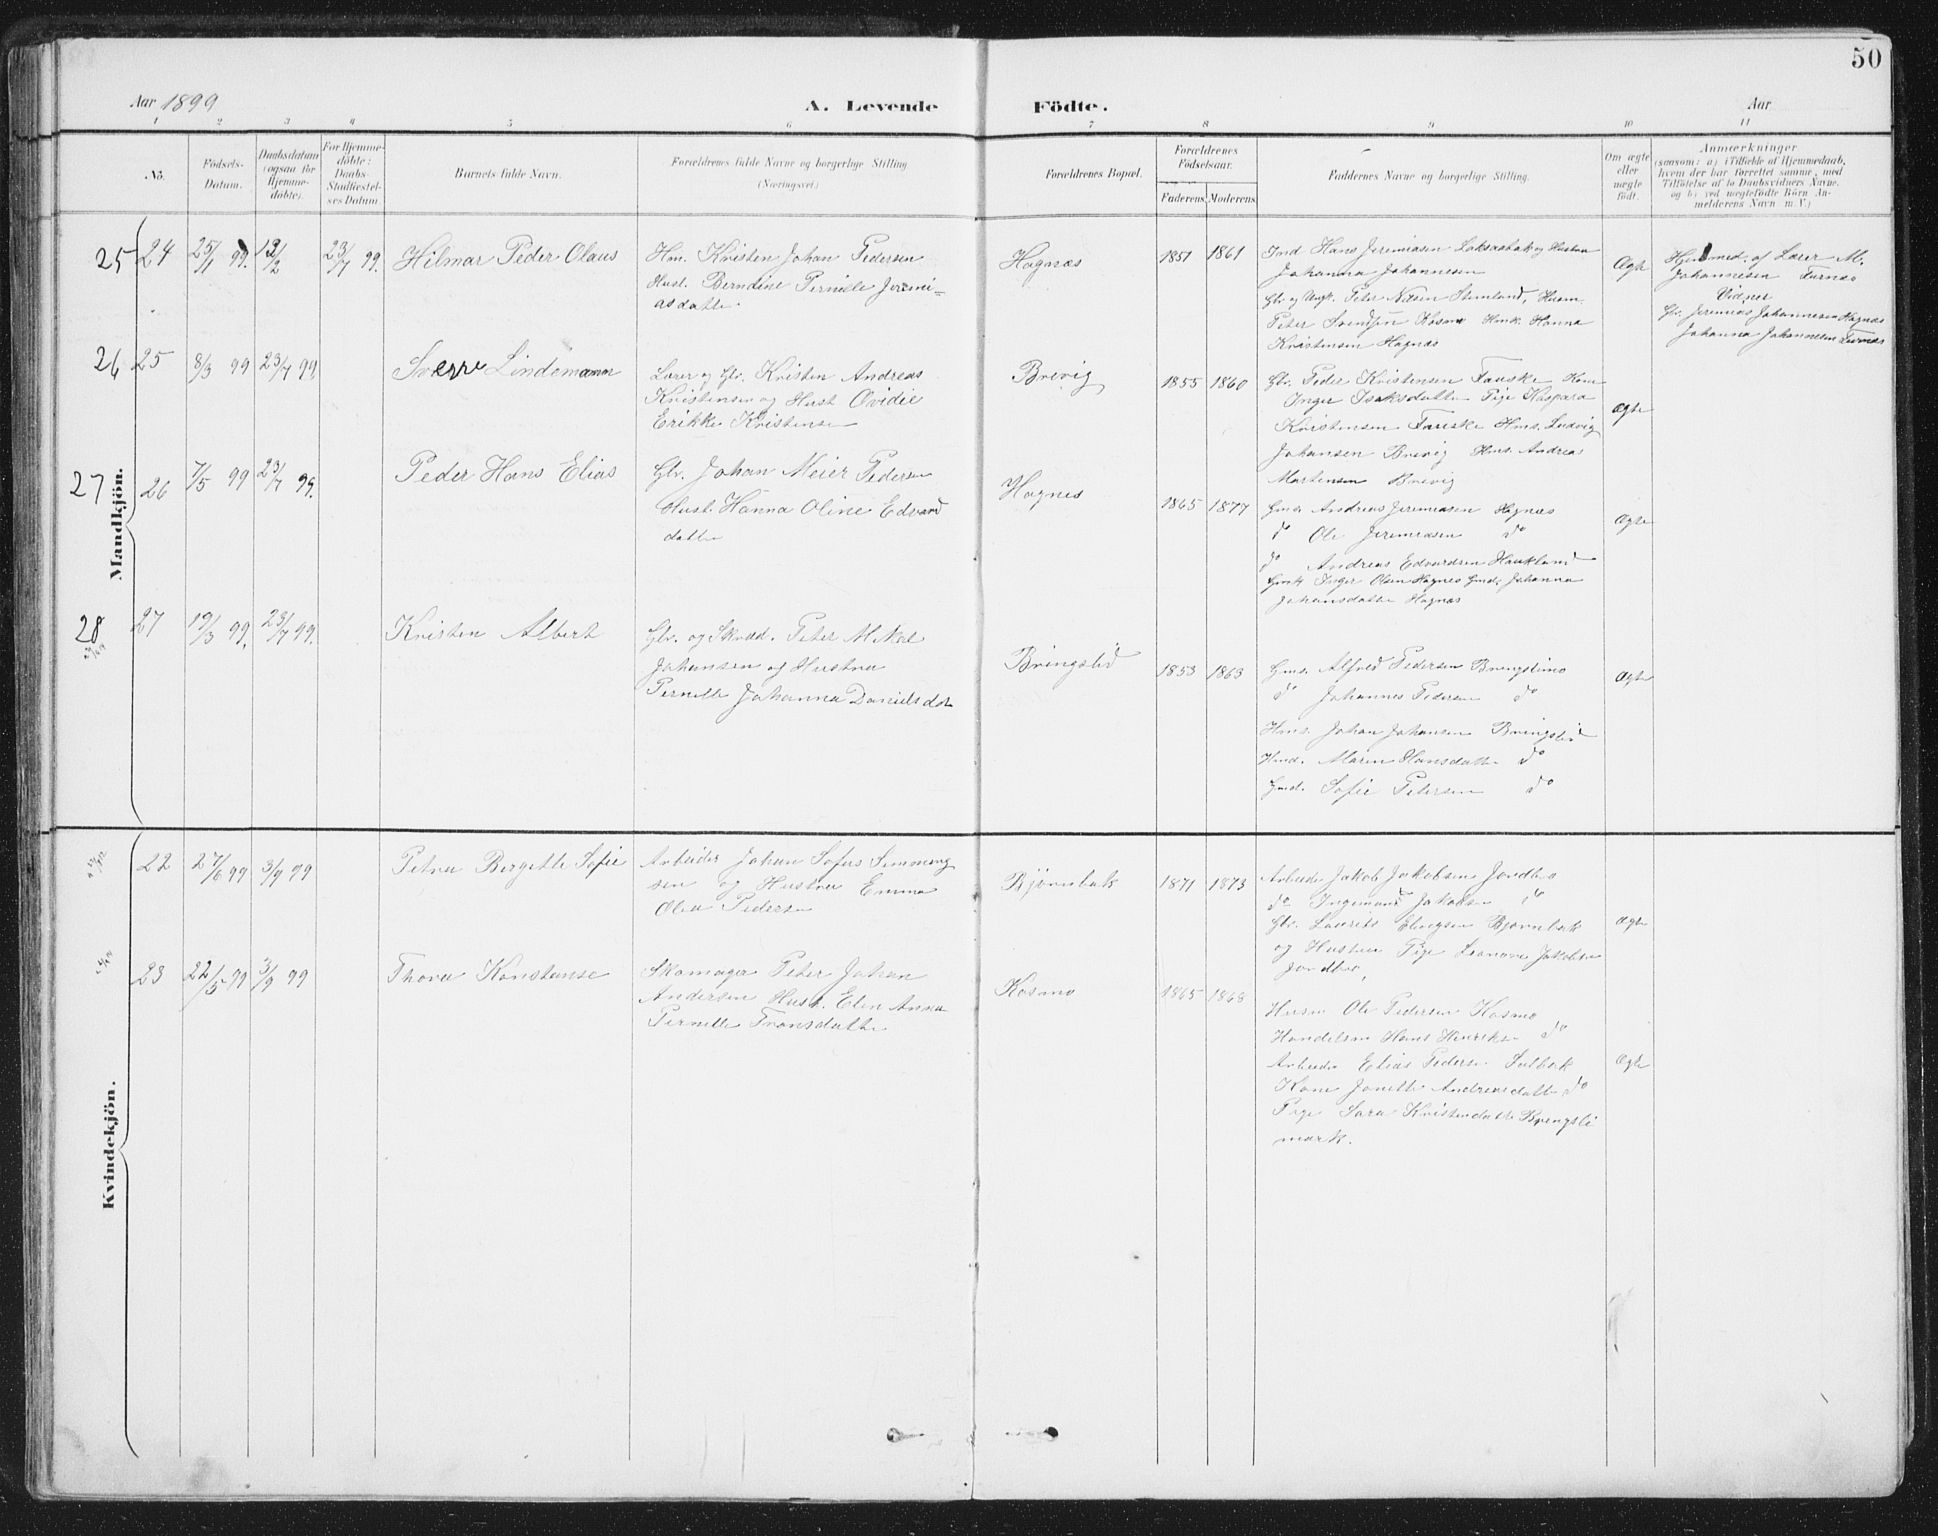 50
Aar 1899 A. Levende Födte. Aar
1 2 3 4 5 6 7 8 9 10 11
No. Födsels-Datum. Daabsdatum (ogsaa for Hjemme-döbte). For Hjemme-döbte: Daabs-Stadfæstel-ses Datum Barnets fulde Navn. Forældrenes fulde Navne og borgerlige Stilling (Næringsvei) Forældrenes Bopæl. Forældrenes Födselsaar. Faderens Moderens Faddernes Navne og borgerlige Stilling. Om ægte eller uægte födt. Anmærkninger
(saasom: a) i Tilfælde af Hjemmedaab,
hvem der har forrettet samme, med
Tilföielse af to Daabsvidners Navne.
og b) ved uægtefödte Börn An-
melderens Navn m.V.)
Mandkjön.
25 24 25/1 99. 12/2 23/7 99. Hilmar Peder Olaus
Hm. Kristen Johan Pedersen
Hust. Berndine Pernille Jeremi-
asdatte
Hagnæs 1851 1861
Ind Hans Jeremiasen Laksaabak og Hustru
Johanna Johannesen
Gbr og Ungk. Peter Nilsen Stemland, Husm
Peter Svendsen Kosmo Hmk. Hanna
Kristensen Hagnæs
Ægte
Hjemmed. af Lærer M.
Johannesen Furnæs
Vidner
Gbr. Jeremias Johannesen Hagnæs
Johanna Johannesen Furnæs
26 25 8/3 99 23/7 99 Sverre Lindemann
Lærer og Gbr. Kristen Andreas
Kristensen og Hust Ovidie
Erikke Kristense
Brevig 1855 1860
Gbr. Peder Kristensen Fauske Kone
Inger Isaksdatte Pige Kaspara
Kristensen Fauske Hms. Ludvig
Johansen Brevig Hms. Andreas
Martensen Brevig
Ægte
27 26 7/5 99 23/7 99. Peder Hans Elias
Gbr. Johan Meier Pedersen
Hust. Hanna Oline Edvard
datte
Hagnes 1865 1877
Gms. Andreas Jeremiasen Hagnæs
do Ole Jeremiasen do
do Andreas Edvardsen Haukland
Gmk Inger Olsen Hagnes Gmd. Johanna
Johansdatte Hagnæs
Ægte
28 27 19/3 99. 23/7 99. Kristen Albert
Gbr. og Skræd. Peter Mikal
Johansen og Hustru
Pernille Johanna Danielsdat
Bringslid 1853 1863
Gms. Alfred Pedersen Bringslimo
do Johannes Pedersen do
Hms. Johan Johansen Bringslid
Hmd. Maren Hansdatte do
Gmd. Sofie Petersen do
Ægte
Kvindekjön.
22 27/6 99 3/9 99 Petra Bergitte Sofie
Arbeider Johan Sofus Simmeng
sen og Hustru Emma
Olea Pederse
Bjørnbak 1871 1873
Arbeider Jakob Jakobsen Jordbro
do Ingemand Jakobsen do
Gbr. Laurits Elingsen Bjørnbak
og Hustru Pige Leonore Jakobse
Jordbro,
Ægte
23 22/5 99 3/9 99 Thora Konstanse
Skomager Peter Johan
Andersen Hust. Elen Anna
Pernille Fransdatte
Kosmo 1865 1868
Husm Ole Pedersen Kosmo
Handelsm Hans Henrikse do
Arbeider Elias Pederse Sulbak
Kone Janette Andreasdatte do
Pige Sara Kristendatte Brengsli
mark.
Ægte